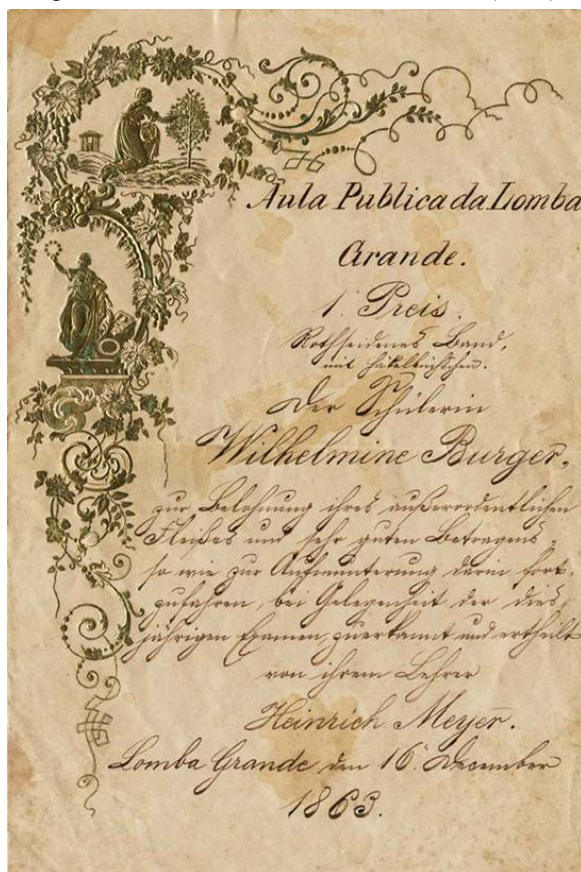 Aula Publica da Lomba
Grande.
1. Preis.
Rothseidenes Band,
mit
Der Schülerin
Wilhelmine Burger,
zur Belohnung ihres außerordentlichen
Fleißes und sehr guten Betragens,
so wie zur Aufmunterung darin fort-
zufahren, bei Gelegenheit der dies-
jährigen Examen, zuerkannt und ertheilt
von ihrem Lehrer
Heinrich Meyer.
Lomba Grande den 16. December
1863.